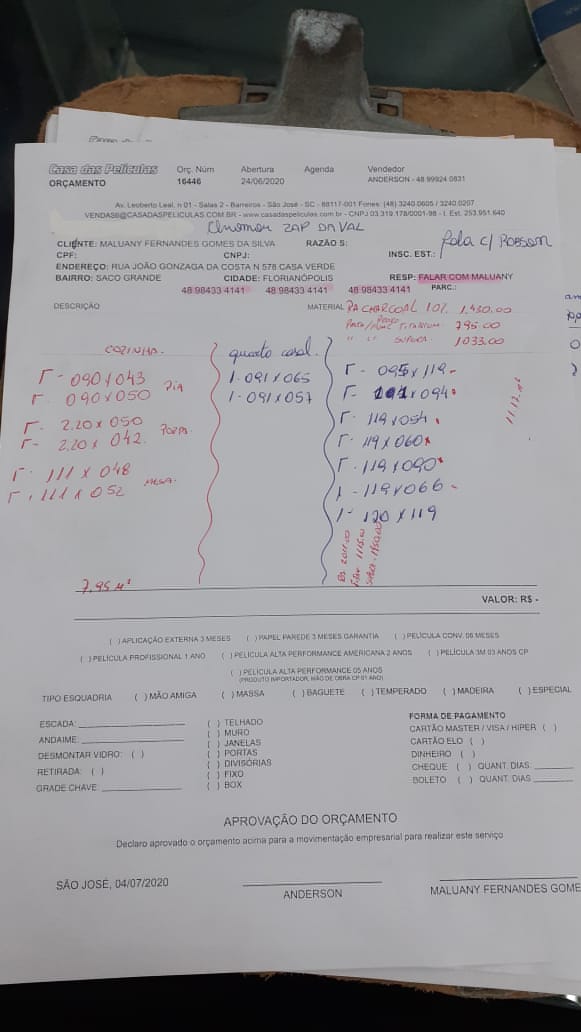 Casa das Películas
ORÇAMENTO
Orç. Núm Abertura Agenda Vendedor
16446 24/06/2020 ANDERSON - 48 99924 0831
Av. Leoberto Leal, n 01 - Salas 2 - Barreiros - São José - SC - 88117-001 Fones: (48) 3240.0605 / 3240.0207
VENDAS6@CASADASPELICULAS.COM.BR - www.casadaspeliculas.com.br - CNPJ 03.319.178/0001-98 - I. Est. 253.951.640
ZAP DA VAL
CLIENTE: MALUANY FERNANDES GOMES DA SILVA RAZÃO S:
Fala c/ Robson
CPF: CNPJ: INSC. EST.:
ENDEREÇO: RUA JOÃO GONZAGA DA COSTA N 578 CASA VERDE
BAIRRO: SACO GRANDE CIDADE: FLORIANÓPOLIS RESP: FALAR COM MALUANY
48 98433 4141 48 98433 4141 48 98433 4141 PARC.:
DESCRIÇÃO MATERIAL
RA CHARCOAL 10% 1.430.00
TITANIUM 795.00
" " SUPORA 1033.00
COZINHA.
1- 090 x 043
1- 090 x 050 PIA
1- 2.20 x 050
1- 2.20 x 042. PORTA
1- 111 x 048
1- 111 x 052 MESA.
quarto casal.
1- 091 x 065
1- 091 x 057
1- 095 x 119
1- x 094
1- 119 x 054
1- 119 x 060
1- 119 x 090
1- 119 x 066
1- 120 x 119
11.12 m²
7,95 M²
VALOR: R$ -
( ) APLICAÇÃO EXTERNA 3 MESES ( ) PAPEL PAREDE 3 MESES GARANTIA ( ) PELÍCULA CONV. 06 MESES
( ) PELÍCULA PROFISSIONAL 1 ANO ( ) PELÍCULA ALTA PERFORMANCE AMERICANA 2 ANOS ( ) PELÍCULA 3M 03 ANOS CP
( ) PELÍCULA ALTA PERFORMANCE 05 ANOS
(PRODUTO IMPORTADOR, MÃO DE OBRA CP 01 ANO)
TIPO ESQUADRIA ( ) MÃO AMIGA ( ) MASSA ( ) BAGUETE ( ) TEMPERADO ( ) MADEIRA ( ) ESPECIAL
ESCADA:
ANDAIME:
DESMONTAR VIDRO: ( )
RETIRADA: ( )
GRADE CHAVE:
( ) TELHADO
( ) MURO
( ) JANELAS
( ) PORTAS
( ) DIVISÓRIAS
( ) FIXO
( ) BOX
FORMA DE PAGAMENTO
CARTÃO MASTER / VISA / HIPER ( )
CARTÃO ELO ( )
DINHEIRO ( )
CHEQUE ( ) QUANT. DIAS:
BOLETO ( ) QUANT. DIAS
APROVAÇÃO DO ORÇAMENTO
Declaro aprovado o orçamento acima para a movimentação empresarial para realizar este serviço
SÃO JOSÉ, 04/07/2020
ANDERSON
MALUANY FERNANDES GOME